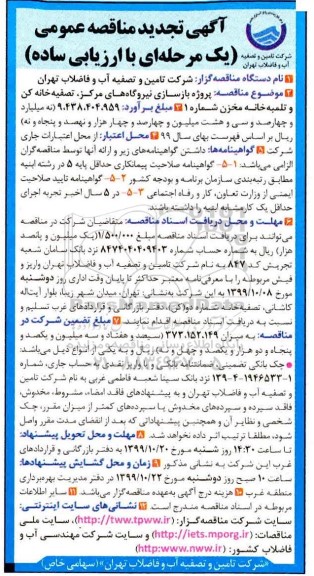 آگهی تجدید مناقصه عمومی
(یک مرحله‌ای با ارزیابی ساده)
شرکت تامین و تصفیه
آب و فاضلاب تهران
۱ نام دستگاه مناقصه‌گزار: شرکت تامین و تصفیه آب و فاضلاب تهران
۲ موضوع مناقصه: پروژه بازسازی نیروگاه‌های مرکز، تصفیه‌خانه کن
و تلمبه‌خانه مخزن شماره ۱ ۳ مبلغ برآورد: ۹.۴۳۸.۴۰۴.۹۵۹ (نه میلیارد
و چهارصد و سی و هشت میلیون و چهارصد و چهار هزار و نهصد و پنجاه و نه)
ریال بر اساس فهرست بهای سال ۹۹ ۴ محل اعتبار: از محل اعتبارات جاری
شرکت ۵ گواهینامه‌ها: داشتن گواهینامه‌های زیر و ارائه آنها توسط مناقصه‌گران
الزامی می‌باشد: ۱-۵- گواهینامه صلاحیت پیمانکاری حداقل پایه ۵ در رشته ابنیه
مطابق رتبه‌بندی سازمان برنامه و بودجه کشور ۲-۵- گواهینامه تایید صلاحیت
ایمنی از وزارت تعاون، کار و رفاه اجتماعی ۳-۵- در ۵ سال اخیر تجربه اجرای
حداقل یک کار مشابه ابنیه را داشته باشند.
۶ مهلت و محل دریافت اسناد مناقصه: متقاضیان شرکت در مناقصه
می‌توانند برای دریافت اسناد مناقصه مبلغ ۱/۵۰۰/۰۰۰ (یک میلیون و پانصد
هزار) ریال به شماره حساب شماره ۸۴۷۴۰۴۰۴۰۹۴۰۳ نزد بانک سامان شعبه
تجریش کد ۸۴۷ به نام شرکت تامین و تصفیه آب و فاضلاب تهران واریز و
فیش مربوطه را با معرفی‌نامه معتبر حداکثر تا پایان وقت اداری روز دوشنبه
مورخ ۱۳۹۹/۱۰/۰۸ به این شرکت به‌نشانی: تهران، میدان شهر زیبا، بلوار آیت‌اله
کاشانی، تصفیه‌خانه شماره ۲ (کن)، دفتر بازرگانی و قراردادهای غرب تسلیم و
نسبت به دریافت اسناد مناقصه اقدام نمایند. ۷ مبلغ تضمین شرکت در
مناقصه: به میزان ۳۷۳.۱۵۲.۱۴۹ (سیصد و هفتاد و سه میلیون و یکصد و
پنجاه و دو هزار و یکصد و چهل و نه) ریال و به یکی از انواع ذیل می‌باشد:
چک بانکی تضمینی، ضمانتنامه بانکی و یا واریز نقدی به حساب جاری، شماره
۱۳۹-۴-۱۹۴۶۵۳۳-۱ نزد بانک سینا شعبه فاطمی غربی به نام شرکت تامین
و تصفیه آب و فاضلاب تهران و به پیشنهادهای فاقد امضاء، مشروط، مخدوش،
فاقد سپرده و سپرده‌های مخدوش یا سپرده‌های کمتر از میزان مقرر، چک
شخصی و نظایر آن و همچنین پیشنهاداتی که بعد از انقضای مدت مقرر واصل
شود، مطلقا ترتیب اثر داده نخواهد شد. ۸ مهلت و محل تحویل پیشنهاد:
تا ساعت ۱۴:۳۰ روز شنبه مورخ ۱۳۹۹/۱۰/۲۰ به دفتر بازرگانی و قراردادهای
غرب این شرکت به نشانی مذکور ۹ زمان و محل گشایش پیشنهادها:
ساعت ۱۰ صبح روز دوشنبه مورخ ۱۳۹۹/۱۰/۲۲ در دفتر مدیریت بهره‌برداری
منطقه غرب ۱۰ هزینه درج آگهی به‌عهده مناقصه‌گزار می‌باشد. ۱۱ سایر اطلاعات
مربوطه در اسناد مناقصه مندرج است. ۱۲ نشانی‌های سایت اینترنتی:
سایت شرکت مناقصه‌گزار: (http://tww.tpww.ir)، سایت ملی
مناقصات: (http://iets.mporg.ir) و سایت شرکت مهندسی آب و
فاضلاب کشور: (http:www.nww.ir)
«شرکت تامین و تصفیه آب و فاضلاب تهران» (سهامی خاص)